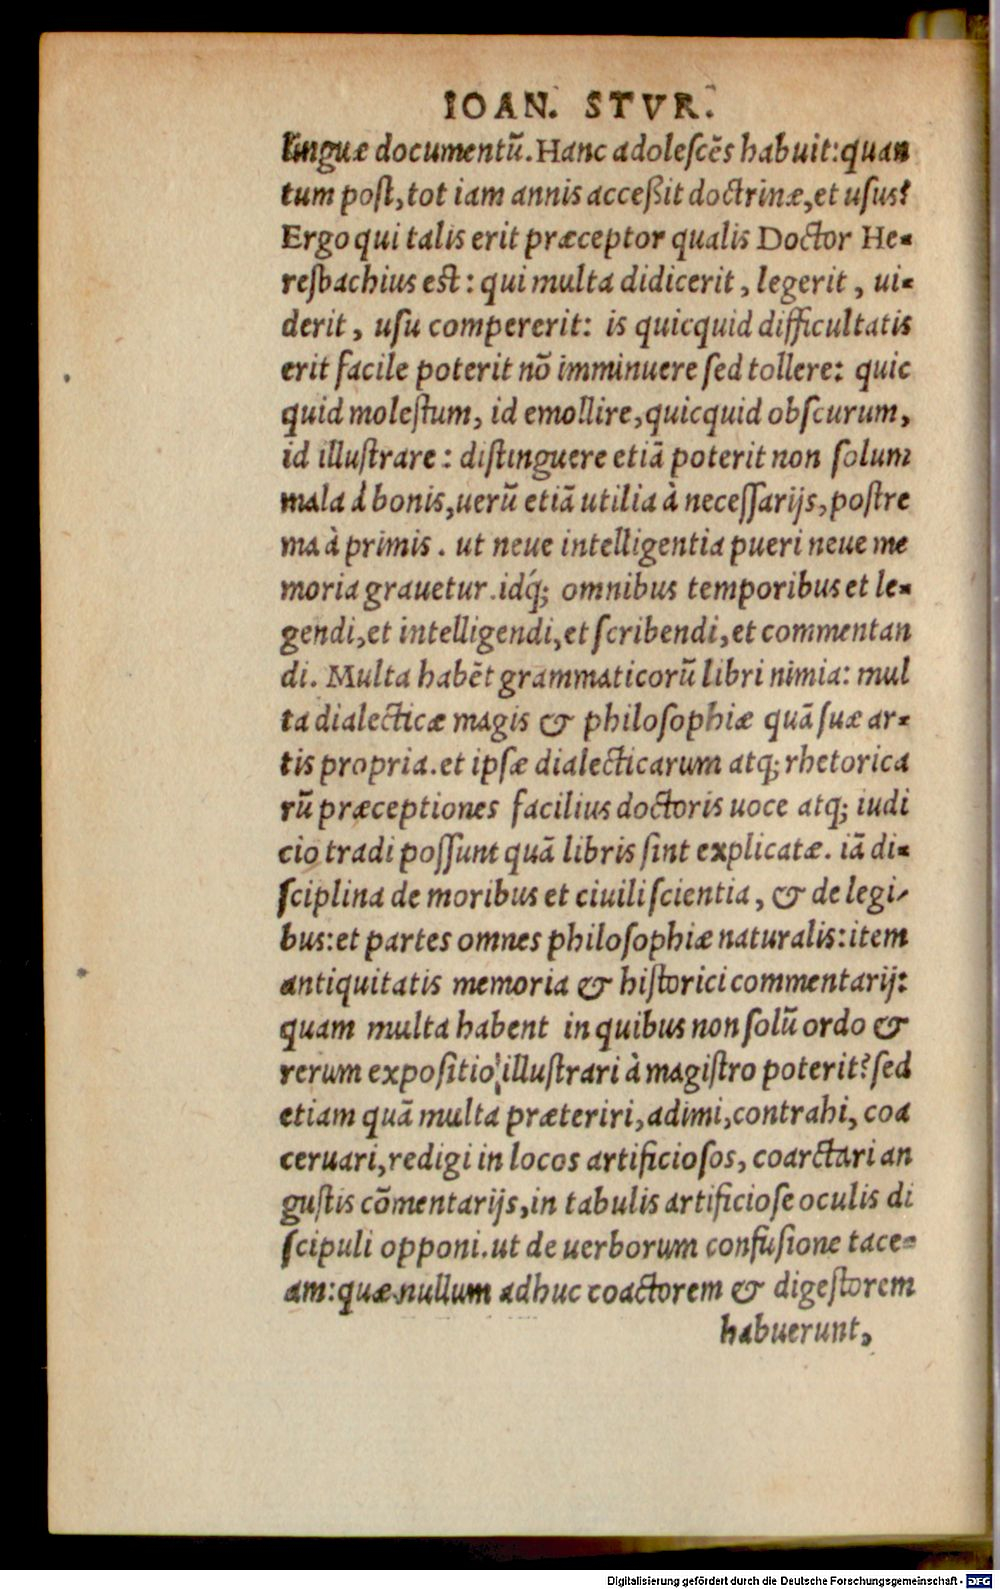 IOAN. STVR.
linguæ documentũ. Hanc adolescẽs habuit: quan
tum post, tot iam annis acceßit doctrinæ, et usus?
Ergo qui talis erit præceptor qualis Doctor He-
resbachius est: qui multa didicerit, legerit, ui-
derit, usu compererit: is quicquid difficultatis
erit facile poterit nõ imminuere sed tollere: quic
quid molestum, id emollire, quicquid obscurum,
id illustrare: distinguere etiã poterit non solum
mala à bonis, uerũ etiã utilia à necessarijs, postre
ma à primis. ut neue intelligentia pueri neue me
moria grauetur. idq́; omnibus temporibus et le-
gendi, et intelligendi, et scribendi, et commentan
di. Multa habẽt grammaticorũ libri nimia: mul
ta dialecticæ magis & philosophiæ quã suæ ar-
tis propria. et ipsæ dialecticarum atq; rhetorica
rũ præceptiones facilius doctoris uoce atq; iudi
cio tradi possunt quã libris sint explicatæ. iã di-
sciplina de moribus et ciuili scientia, & de legi-
bus: et partes omnes philosophiæ naturalis: item
antiquitatis memoria & historici commentarij:
quam multa habent in quibus non solũ ordo &
rerum expositio illustrari à magistro poterit? sed
etiam quã multa præteriri, adimi, contrahi, coa
ceruari, redigi in locos artificiosos, coarctari an
gustis cõmentarijs, in tabulis artificiose oculis di
scipuli opponi. ut de uerborum confusione tace-
am: quæ nullum adhuc coactorem & digestorem
habuerunt,
Digitalisierung gefördert durch die Deutsche Forschungsgemeinschaft - DFG